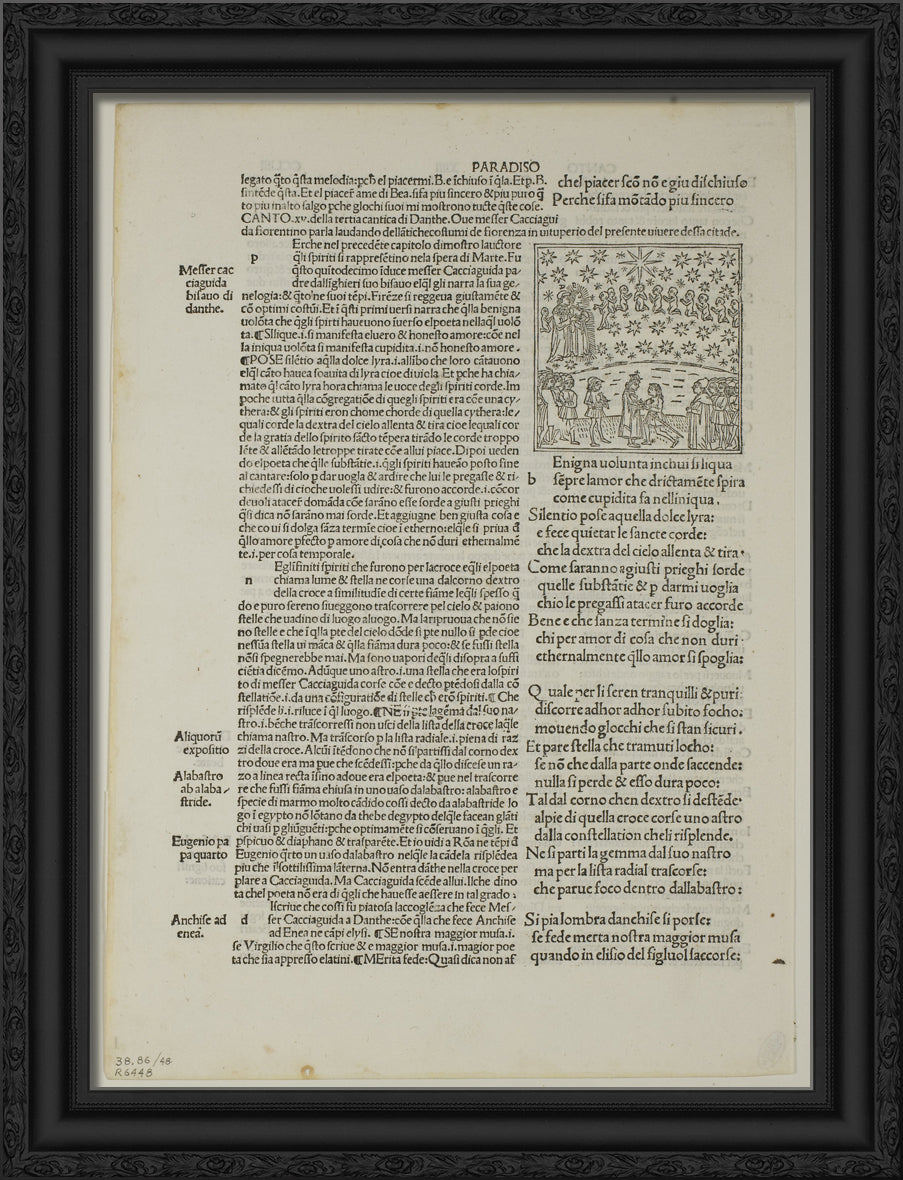 PARADISO
legato q̃to q̃sta melodia:pch̃ el piacermi.B.e ĩchiuso ĩ q̃la.Et p.B.
sintẽde q̃sta.Et el piacer̃ ame di Bea.sifa piu sincero &piu puro q̃
to piu inalto salgo pche glochi suoi mi mostrono tucte q̃ste cose.
CANTO.xv.della tertia cantica di Danthe.Oue messer Cacciagui
da fiorentino parla laudando dellãtichecostumi de fiorenza in uituperio del presente uiuere dessa citade.
chel piacer scõ nõ e giu dischiuso
Perche sifa mõtãdo piu sincero
Messer cac
ciaguida
bisauo di
danthe.
Erche nel precedẽte capitolo dimostro lauctore
p
q̃li spiriti si rappresẽtino nela spera di Marte.Fu
q̃sto quitodecimo ĩduce messer Cacciaguida pa-
dre dallsighieri suo bisauo elq̃l gli narra la sua ge-
nelogia:& q̃to'ne suoi tẽpi.Firẽze si reggeua giustamẽte &
cõ optimi costũi.Et ĩ q̃sti primi uersi narra che q̃lla benigna
uolõta che q̃gli spirti haueuono ĩuerso elpoeta nellaq̃l uolõ
ta.¶SIlique.i.si manifesta eluero & honesto amore:cõe nel
la iniqua uolõta si manifesta cupidita.i.nõ honesto amore.
¶POSE silẽtio aq̃lla dolce lyra.i.allsbo che loro cãtauono
elq̃l cãto hauea soauita di lyra cioe di uiola. Et pche ha chia-
mato q̃l cãto lyra hora chiama le uoce degli spiriti corde.Im
poche tutta q̃lla cõgregatiõe di quegli spiriti era cõe una cy-
thera:& gli spiriti eron chome chorde di quella cythera:le-
quali corde la dextra del cielo allenta & tira cioe lequali cor
de la gratia dello spirito sãcto tẽpera tirãdo le corde troppo
lẽte & allẽtãdo letroppe tirate cõe allui piace.Dipoi ueden
do elpoeta che q̃lle substãtie.i.q̃gli spiriti haueão posto fine
al cantare:solo p dar uogla & ardire che lui le pregasse & ri-
chiedessi di cioche uolessi udire:& furono accorde.i.cõcor
deuoli atacer̃ domãda cõe sarãno esse sorde a giusti prieghi
q̃si dica nõ sarãno mai sorde.Et aggiugne ben giusta cosa e
che co ui si dolga sãza termĩe cioe i etherno:elq̃le si priua d̃
q̃llo amore pfecto p amore di cosa che nõ duri ethernalmẽ
te.i.per cosa temporale.
Eglisfiniti spiriti che furono per lacroce eq̃li elpoeta
n
chiama lume & stella ne corse una dalcorno dextro
della croce a similitudĩe di certe fiãme leq̃li spesso q̃
do e puro sereno siueggono trascorrere pel cielo & paiono
stelle che uadino di luogo aluogo. Ma laripruoua che nõ sie
no stelle e che ĩ q̃lla pte del cielo dõde si pte nullo si pde cioe
nessũa stella ui mãca & q̃lla fiãma dura poco:& se fussi stella
nõsi spegnerebbe mai. Ma sono uapori deq̃li disopra a suffi
ciẽtia dicẽmo. Adũque uno astro.i.una stella che era lospiri
to di messer Cacciaguida corse cõe e decto ptẽdosi dalla cõ
stellatiõe.i.da una cõfiguratiõe di stelle ch̃ erõ spiriti.¶ Che
risplẽde li.i.riluce ĩ q̃l luogo.¶NE si pte lagẽma dal suo na-
stro.i.bẽche trãscorressi non usci della lista della croce laq̃le
chiama nastro. Ma trãscorso p la lista radiale.i.piena di raz
zi della croce. Alcũi ĩtẽdono che nõ si partissi dal corno dex
tro doue era ma pue che scẽdessi:pche da q̃llo discese un ra-
zo a linea recta ĩsino adoue era elpoeta:& pue nel trascorre
re che fussi fiãma chiusa in uno uaso dalabastro: alabastro e
specie di marmo molto cãdido cossi decto da alabastride lo
go ĩ egypto nõ lõtano da thebe degypto delq̃le facean glãti
chi uasi p gliũguẽti:pche optimamẽte si cõseruano ĩ q̃gli. Et
pspicuo & diaphano & trasparẽte. Et io uidi a Rõa ne tẽpi d̃
Eugenio q̃rto un uaso dalabastro nelq̃le la cãdela risplẽdea
piu che ĩ sottilissima lãterna. Nõ entra dãthe nella croce per
plare a Cacciaguida. Ma Cacciaguida scẽde allui. Ilche dino
ta chel poeta nõ era di q̃gli che hauesse aessere in tal grado.
Iscriue che cossi fu piatosa laccoglẽza che fece Mes-
d
ser Cacciaguida a Danthe:cõe q̃lla che fece Anchise
ad Enea ne cãpi elysi. ¶SE nostra maggior musa.i.
se Virgilio che q̃sto scriue & e maggior musa.i.magior poe
ta che sia appresso elatini.¶MErita fede:Quasi dica non af
Aliquorũ
expositio
Alabastro
ab alaba-
stride.
Eugenio pa
pa quarto
Anchise ad
eneã.
Enigna uolunta inchui si liqua
b
sẽpre lamor che drictamẽte spira
come cupidita fa nelliniqua.
Silentio pose aquella dolce lyra:
e fece quietar le sancte corde:
che la dextra del cielo allenta & tira.
Come saranno agiusti prieghi sorde
quelle substãtie & p darmi uoglia
chio le pregassi atacer furo accorde
Bene e che sanza termine si doglia:
chi per amor di cosa che non duri:
ethernalmente q̃llo amor si spoglia:
Quale per li seren tranquilli & puri:
discorre adhor adhor subito focho:
mouendo glocchi che si stan sicuri.
Et pare stella che tramuti locho:
se nõ che dalla parte onde saccende:
nulla si perde & esso dura poco:
Tal dal corno chen dextro si destẽde.
alpie di quella croce corse uno astro
dalla constellation cheli risplende.
Ne si parti la gemma dal suo nastro
ma per la lista radial trascorse:
che parue foco dentro dallabastro:
Si pia lombra danchise si porse:
se fede merta nostra maggior musa
quando in elisio del figluol saccorse:
38.86/48
R6448